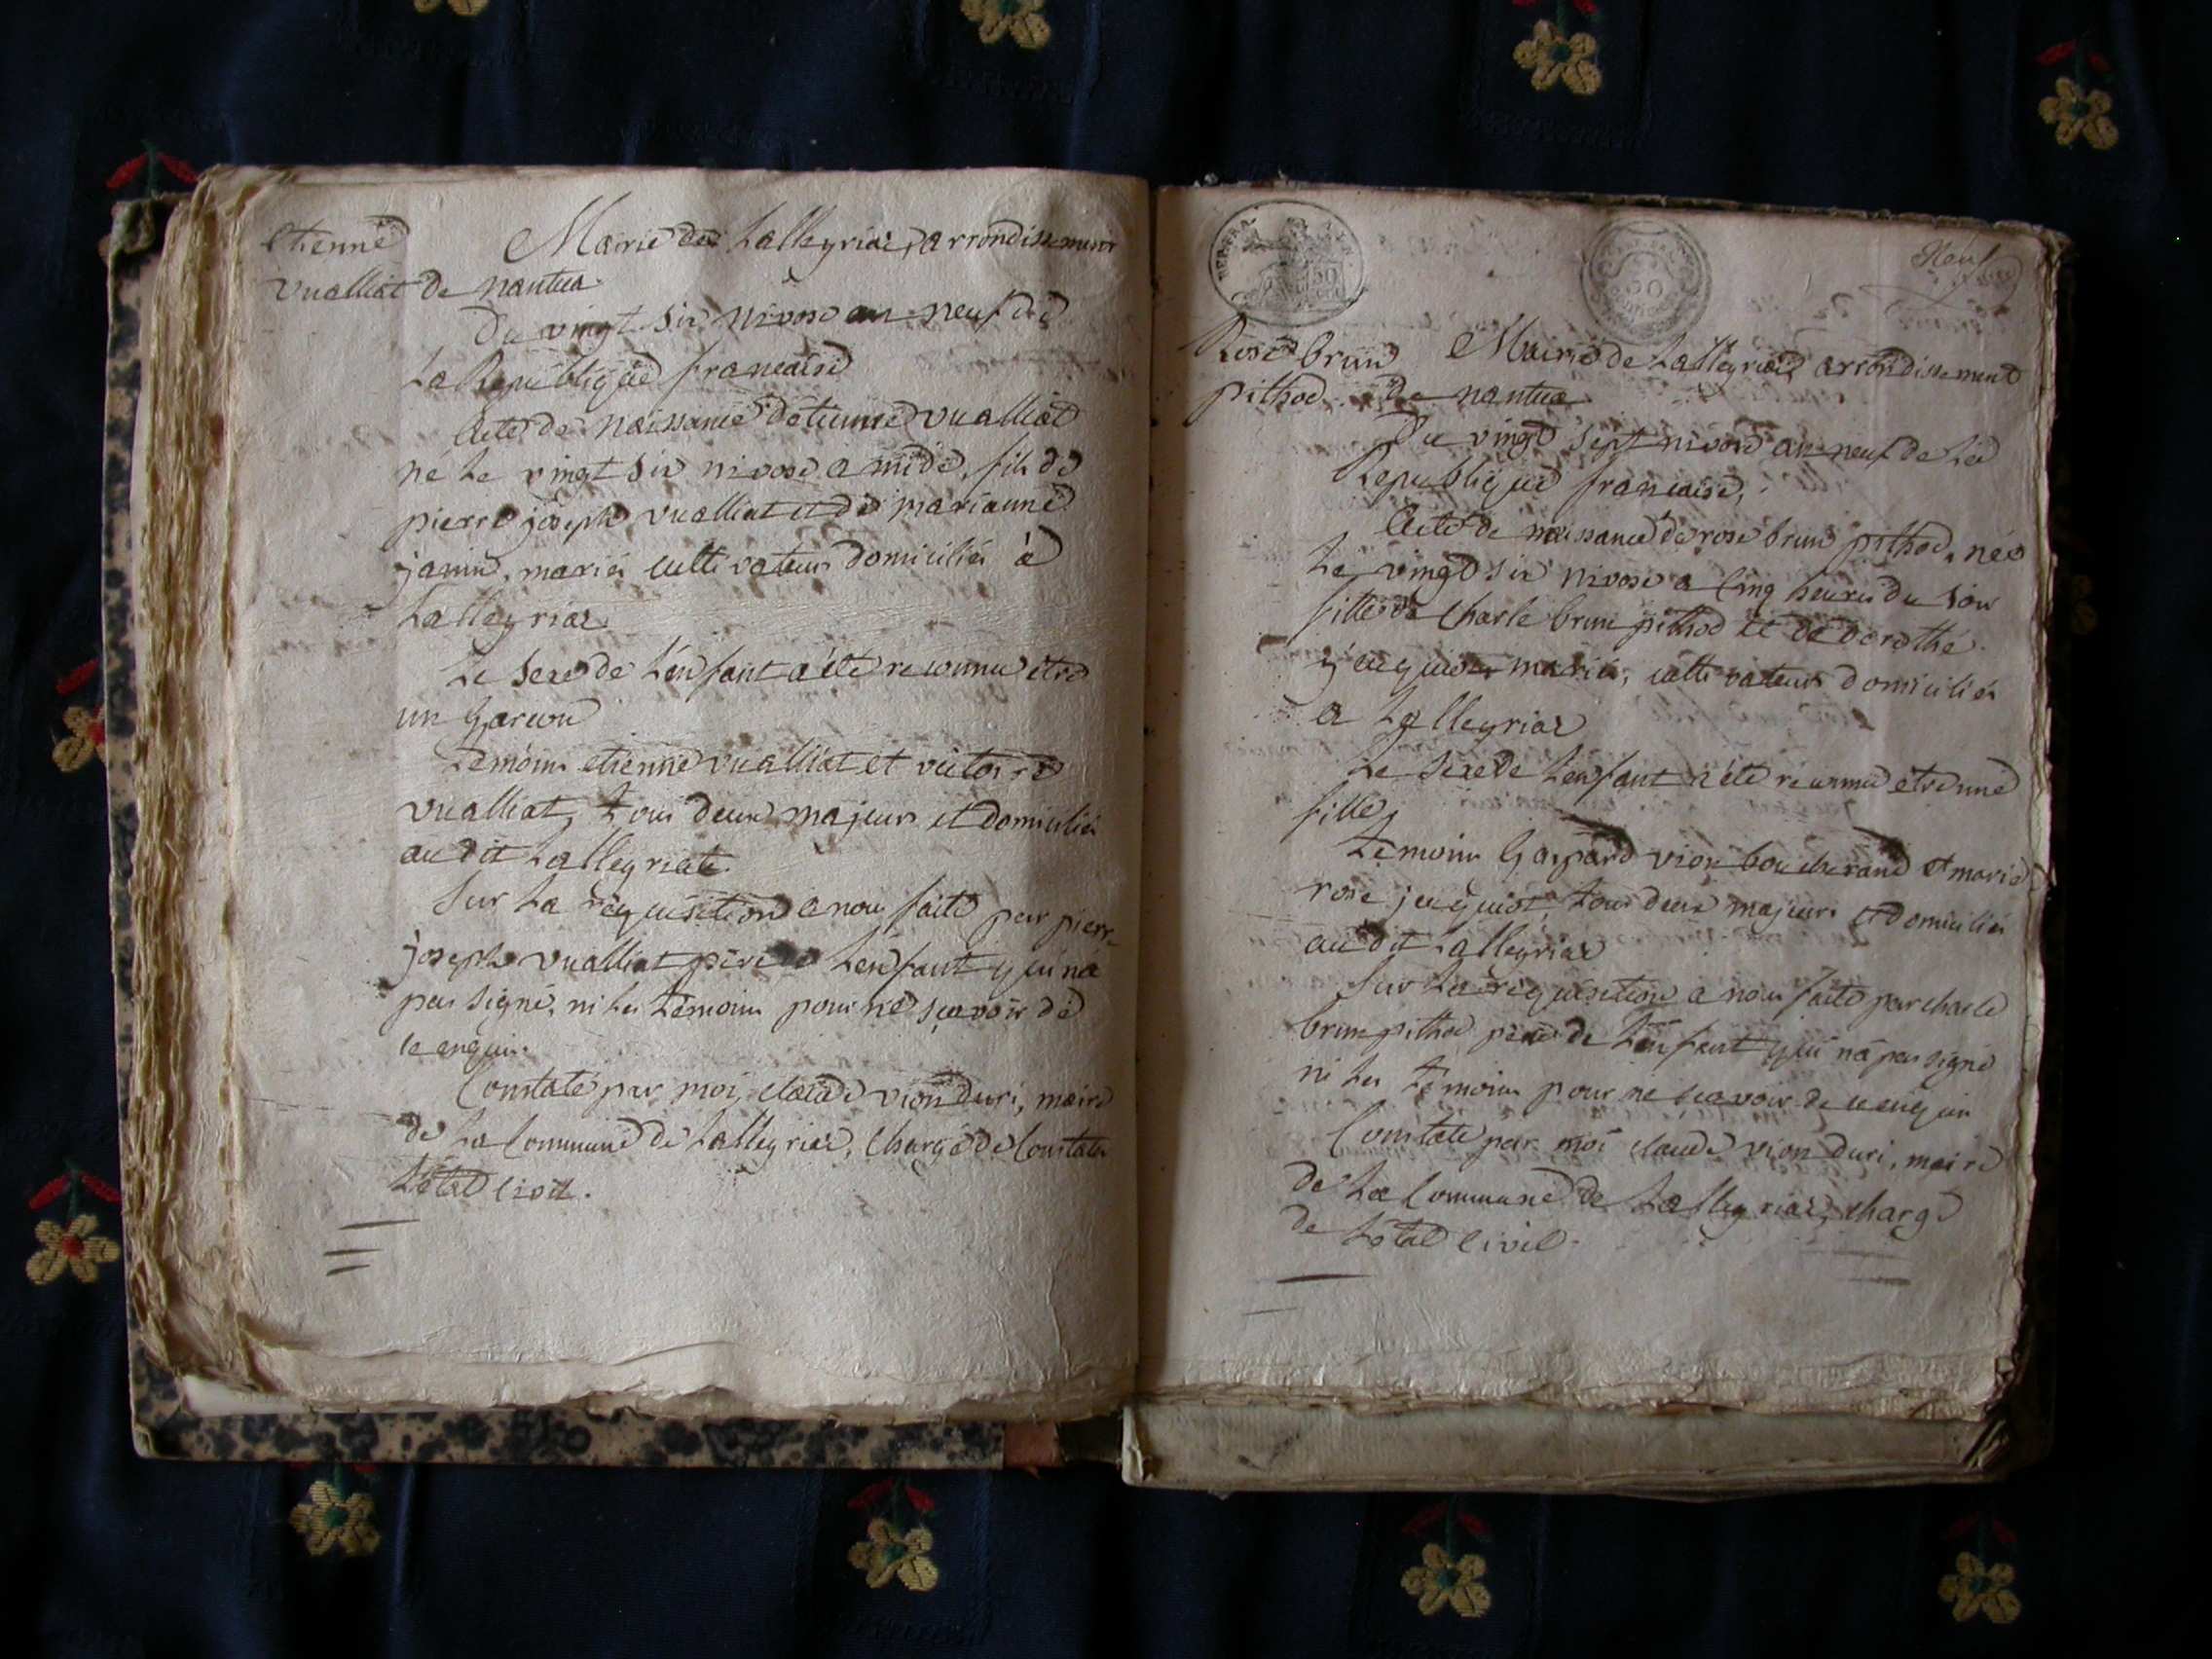 etienne
vualliat
Mairie de Lalleyriat, arrondissement
de nantua
Du vingt six nivose an neuf de
La Republique francaise
Acte de naissance detienne vualliat
né Le vingt six nivose a midi, fils de
pierre joseph vualliat et de marianne
janin, mariés cultivateurs domiciliés à
Lalleyriat
Le sexe de Lenfant a été reconnu etre
un Garcon
Temoins etienne vualliat et victoire
vualliat, tous deux majeurs et domiciliés
au dit Lalleyriat.
Sur La requisition a nous faite par pierre
joseph vualliat pere Lenfant qui na
pas signé, ni les temoins pour ne sçavoir de
ce enquis.
Constaté par moi, claude vion duri, maire
de La Commune de Lalleyriat, Chargé de Constater
Létat Civil.
Neuf
50
50
Rose brun
pithod
Mairie de Lalleyriat arrondissement
de nantua
Du vingt sept nivose an neuf de La
Republique francaise,
Acte de naissance de rose brun pithod, née
Le vingt six nivose a Cinq heures du soir
fille de Charle brun pithod et de dorothé
jacquiot mariés, cultivateurs domiciliés
a Lalleyriat
Le sexe de Lenfant a été reconnu etre une
fille,
Temoins Gaspard vion boucherand et marie
rose jacquiot, tous deux majeurs et domiciliés
au dit Lalleyriat
Sur La requisition a nous faite par charle
brun pithod pere de Lenfant qui na pas signé
ni les temoins pour ne scavoir de ce enquis
Constaté par moi claude vion duri, maire
de La Commune de Lalleyriat, chargé
de Létat Civil.